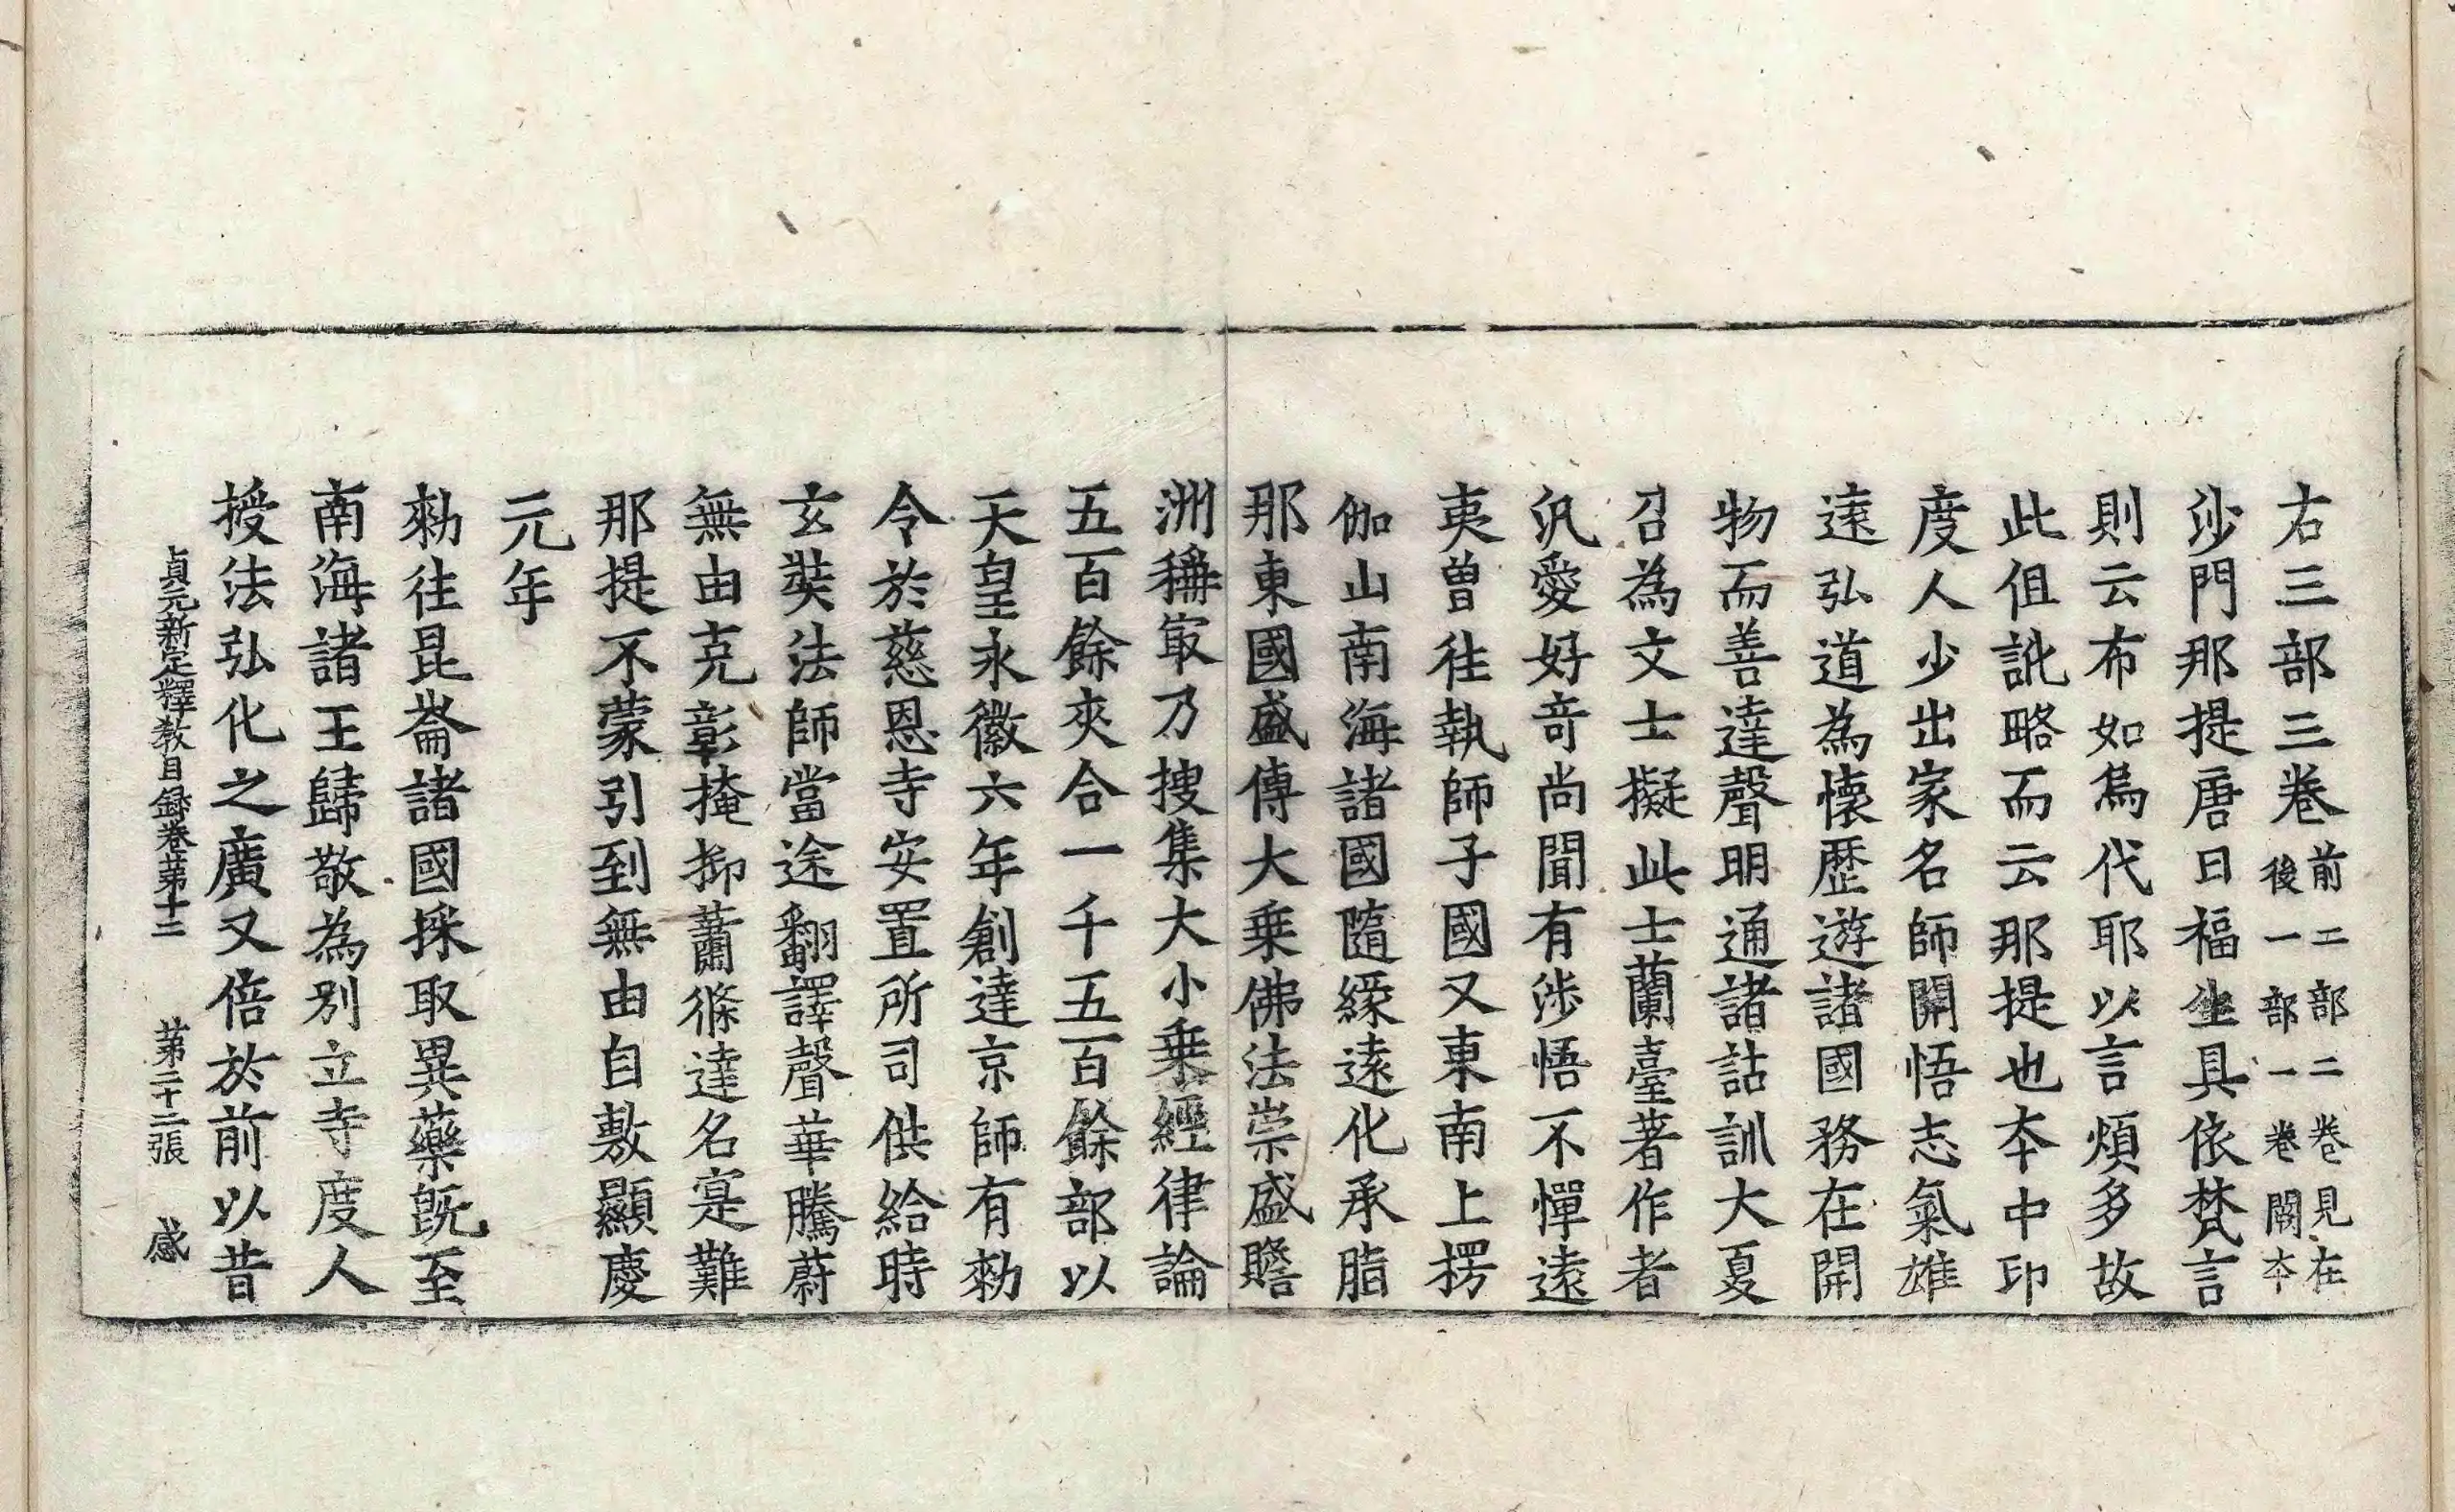 右三部三卷前二部二卷見在後一部一卷闕本
沙門那提唐曰福生具依梵言
則云布如烏代耶以言煩多故
此但訛略而云那提也本中印
度人少出家名師開悟志氣雄
遠弘道為懷歷遊諸國務在開
物而善達聲明通諸詁訓大夏
召為文士擬此士蘭臺著作者
汎愛好奇尚聞有涉悟不憚遠
夷曾往執師子國又東南上楞
伽山南海諸國隨緣遠化承脂
那東國盛傳大乘佛法崇盛贍
洲稱冣乃搜集大小乘經律論
五百餘夾合一千五百餘部以
天皇永徽六年創達京師有勅
令於慈恩寺安置所司供給時
玄奘法師當途翻譯聲華騰蔚
無由克彰掩抑蕭條達名寔難
那提不蒙引到無由自敷顯慶
元年
勅往昆崙諸國採取異藥既至
南海諸王歸敬為別立寺度人
授法弘化之廣又倍於前以昔
貞元新定釋教目録卷苐十三 苐二十二張 感